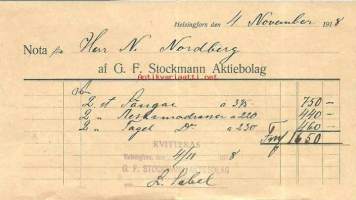 Helsingfors den 4 November 1918
Nota för Herr N. Nordberg
af G. F. Stockmann Aktiebolag
2 st Sängar à 375 750
2 „ Resårmadrasser à 220 440
2 „ Tagel Do à 230 460
Fmk 1650
KVITTERAS
Helsingfors 4/11 8
G. F. STOCKMANN AKTIEBOLAG